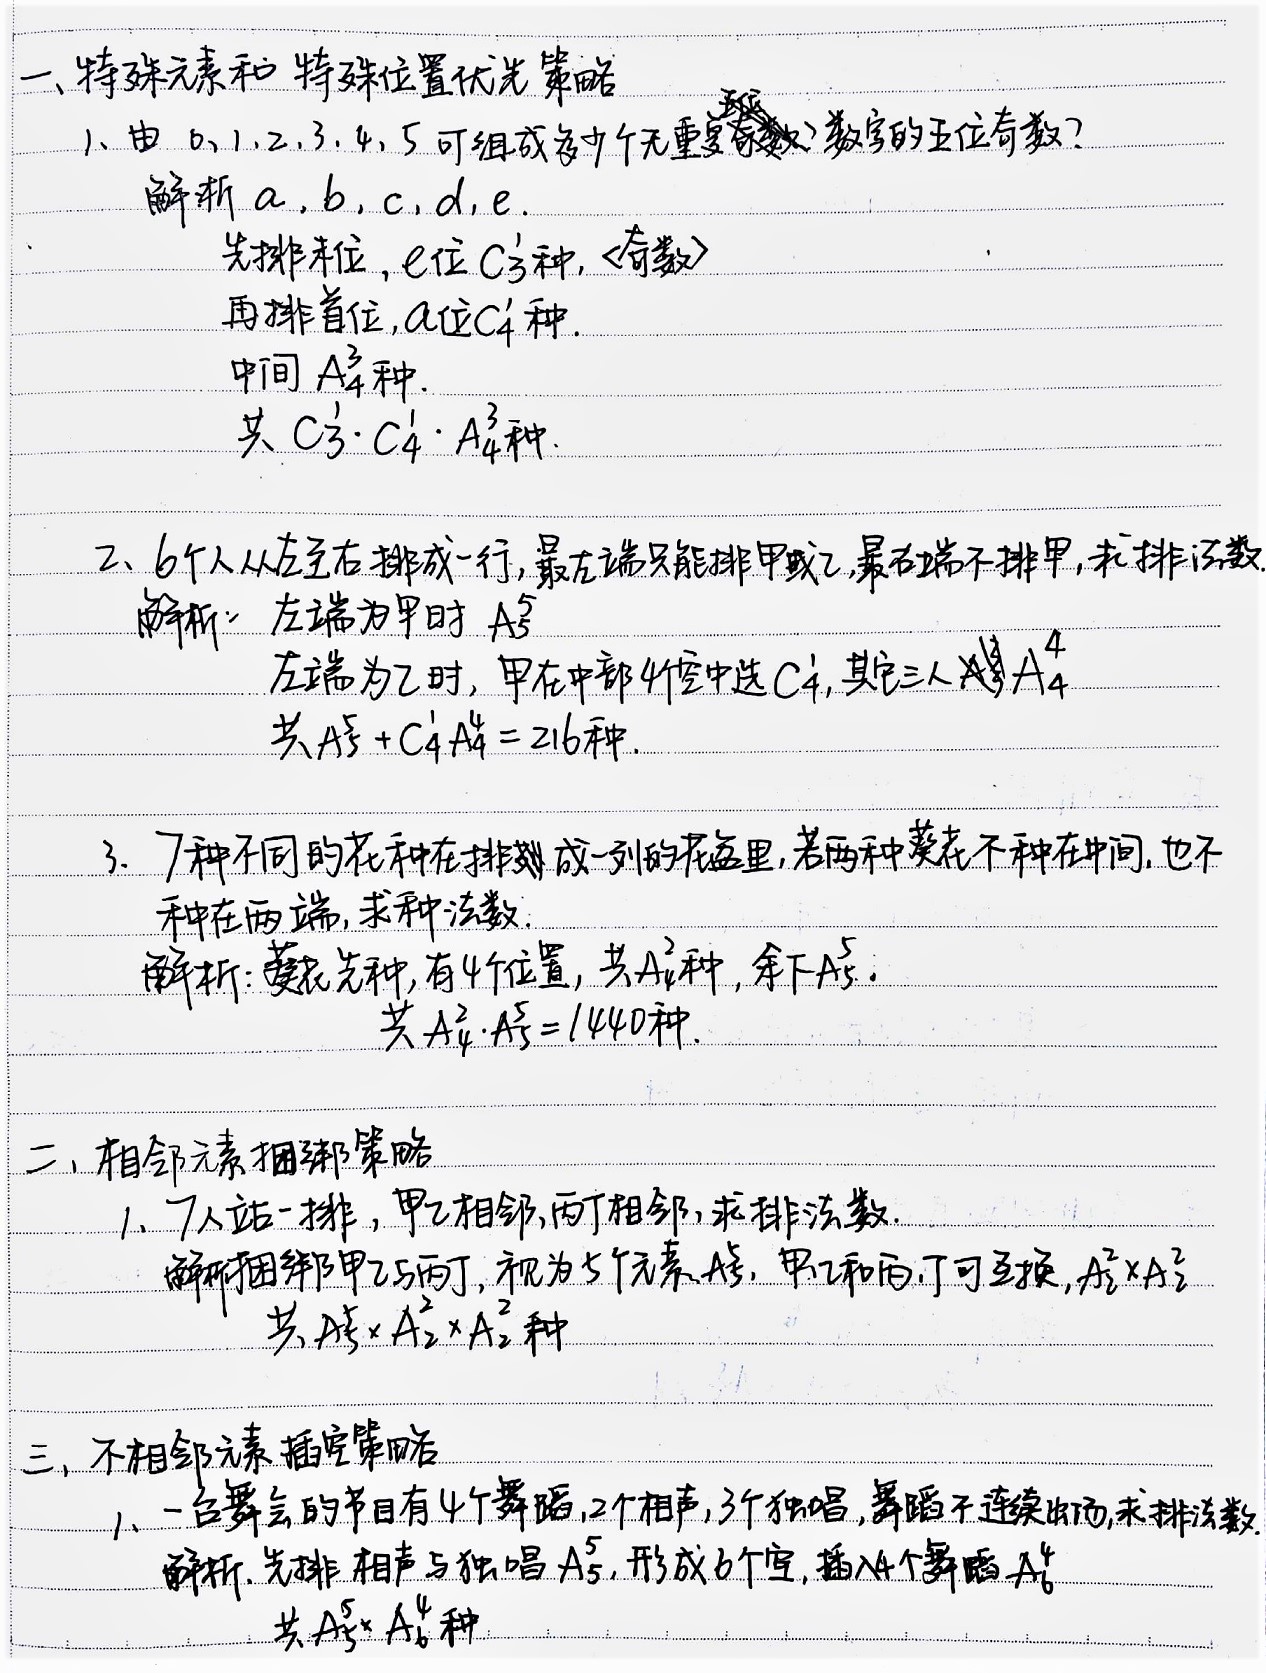 一、特殊元素和特殊位置优先策略
1、由 0,1,2,3,4,5 可组成多少个无重复数字的五位奇数?
解析 a, b, c, d, e.
先排末位, e位 C₃¹种, <奇数>
再排首位, a位C₄¹种.
中间 A₄³种.
共 C₃¹·C₄¹·A₄³种.
2、6个人从左至右排成一行,最左端只能排甲或乙,最右端不排甲,求排法数.
解析: 左端为甲时 A₅⁵
左端为乙时, 甲在中部4个空中选C₄¹, 其它三人 A₄⁴
共A₅⁵+C₄¹A₄⁴=216种.
3、7种不同的花种在排成一列的花盆里,若两种葵花不种在中间,也不
种在两端,求种法数.
解析:葵花先种,有4个位置,共A₄²种,余下A₅⁵.
共A₄²·A₅⁵=1440种.
二、相邻元素捆绑策略
1、7人站一排,甲乙相邻,丙丁相邻,求排法数.
解析捆绑甲乙与丙丁,视为5个元素A₅⁵, 甲乙和丙丁可互换,A₂²×A₂²
共A₅⁵×A₂²×A₂²种
三、不相邻元素插空策略
1、一台舞会的节目有4个舞蹈,2个相声,3个独唱,舞蹈不连续出场,求排法数.
解析.先排相声与独唱A₅⁵,形成6个空,插入4个舞蹈A₆⁴
共A₅⁵×A₆⁴种